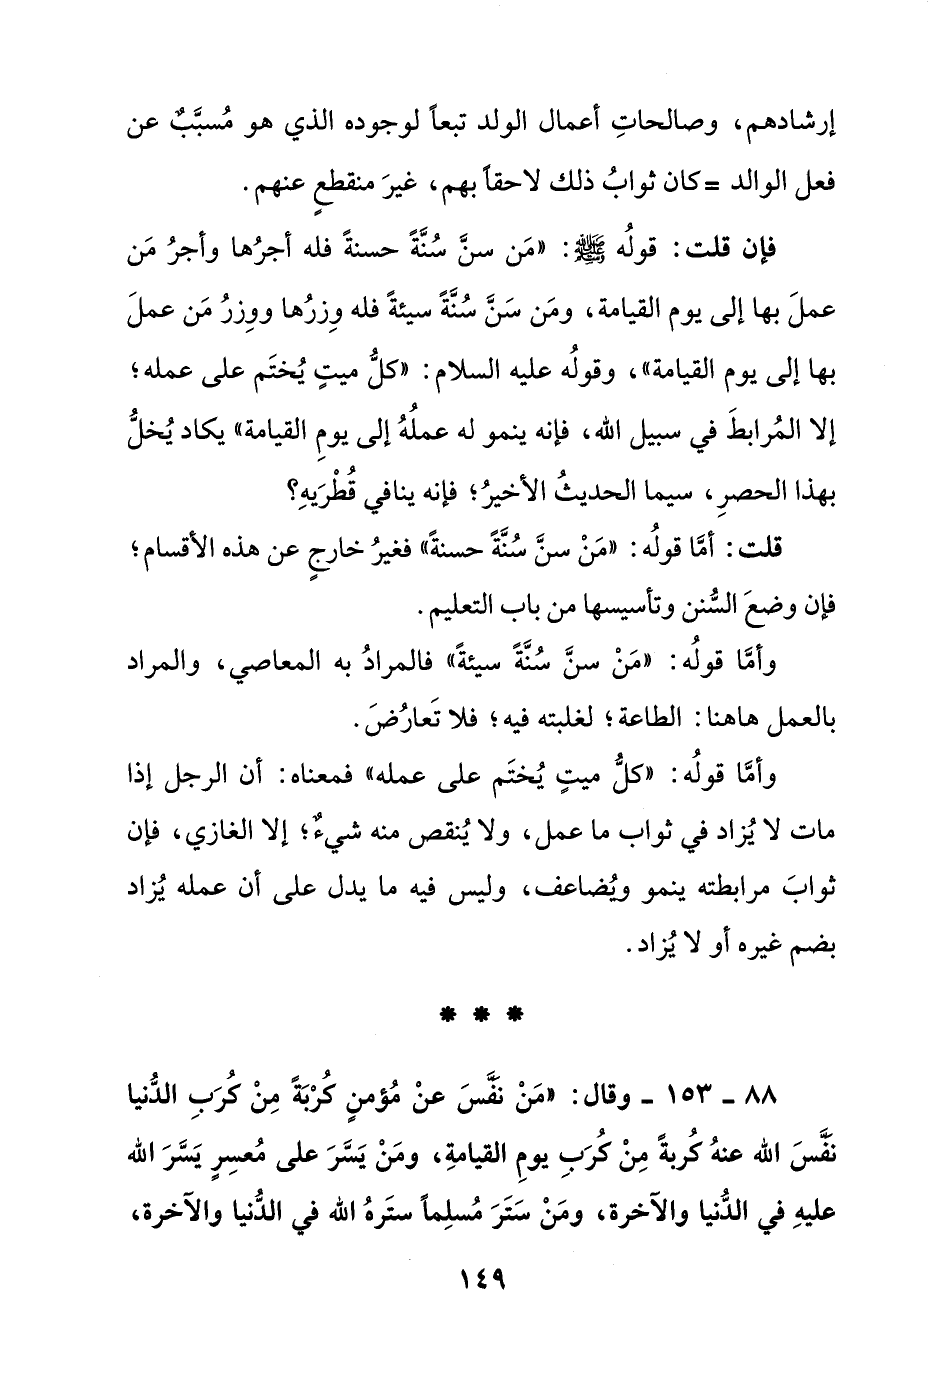 إرشادهم، وصالحاتِ أعمال الولد تبعاً لوجوده الذي هو مُسبَّبٌ عن
فعل الوالد =كان ثوابُ ذلك لاحقاً بهم، غيرَ منقطعٍ عنهم.
فإن قلت: قولُه ﷺ: «مَن سنَّ سُنَّةً حسنةً فله أجرُها وأجرُ مَن
عملَ بها إلى يوم القيامة، ومَن سَنَّ سُنَّةً سيئةً فله وِزرُها ووِزرُ مَن عملَ
بها إلى يوم القيامة»، وقولُه عليه السلام: «كلُّ ميتٍ يُختَم على عمله؛
إلا المُرابطَ في سبيل الله، فإنه ينمو له عملُهُ إلى يومِ القيامة» يكاد يُخلُّ
بهذا الحصرِ، سيما الحديثُ الأخيرُ؛ فإنه ينافي قُطْرَيهِ؟
قلت: أمَّا قولُه: «مَنْ سنَّ سُنَّةً حسنةً» فغيرُ خارجٍ عن هذه الأقسام؛
فإن وضعَ السُّنن وتأسيسها من باب التعليم.
وأمَّا قولُه: «مَنْ سنَّ سُنَّةً سيئةً» فالمرادُ به المعاصي، والمراد
بالعمل هاهنا: الطاعة؛ لغلبته فيه؛ فلا تَعارُضَ.
وأمَّا قولُه: «كلُّ ميتٍ يُختَم على عمله» فمعناه: أن الرجل إذا
مات لا يُزاد في ثواب ما عمل، ولا يُنقص منه شيءٌ؛ إلا الغازي، فإن
ثوابَ مرابطته ينمو ويُضاعف، وليس فيه ما يدل على أن عمله يُزاد
بضم غيره أو لا يُزاد.
* * *
٨٨ ـ ١٥٣ ـ وقال: «مَنْ نفَّسَ عنْ مُؤمنٍ كُرْبَةً مِنْ كُرَبِ الدُّنيا
نفَّسَ الله عنهُ كُربةً مِنْ كُرَبِ يومِ القيامةِ، ومَنْ يَسَّرَ على مُعسِرٍ يَسَّرَ الله
عليهِ في الدُّنيا والآخرة، ومَنْ سَتَرَ مُسلِماً ستَرهُ الله في الدُّنيا والآخرة،
١٤٩